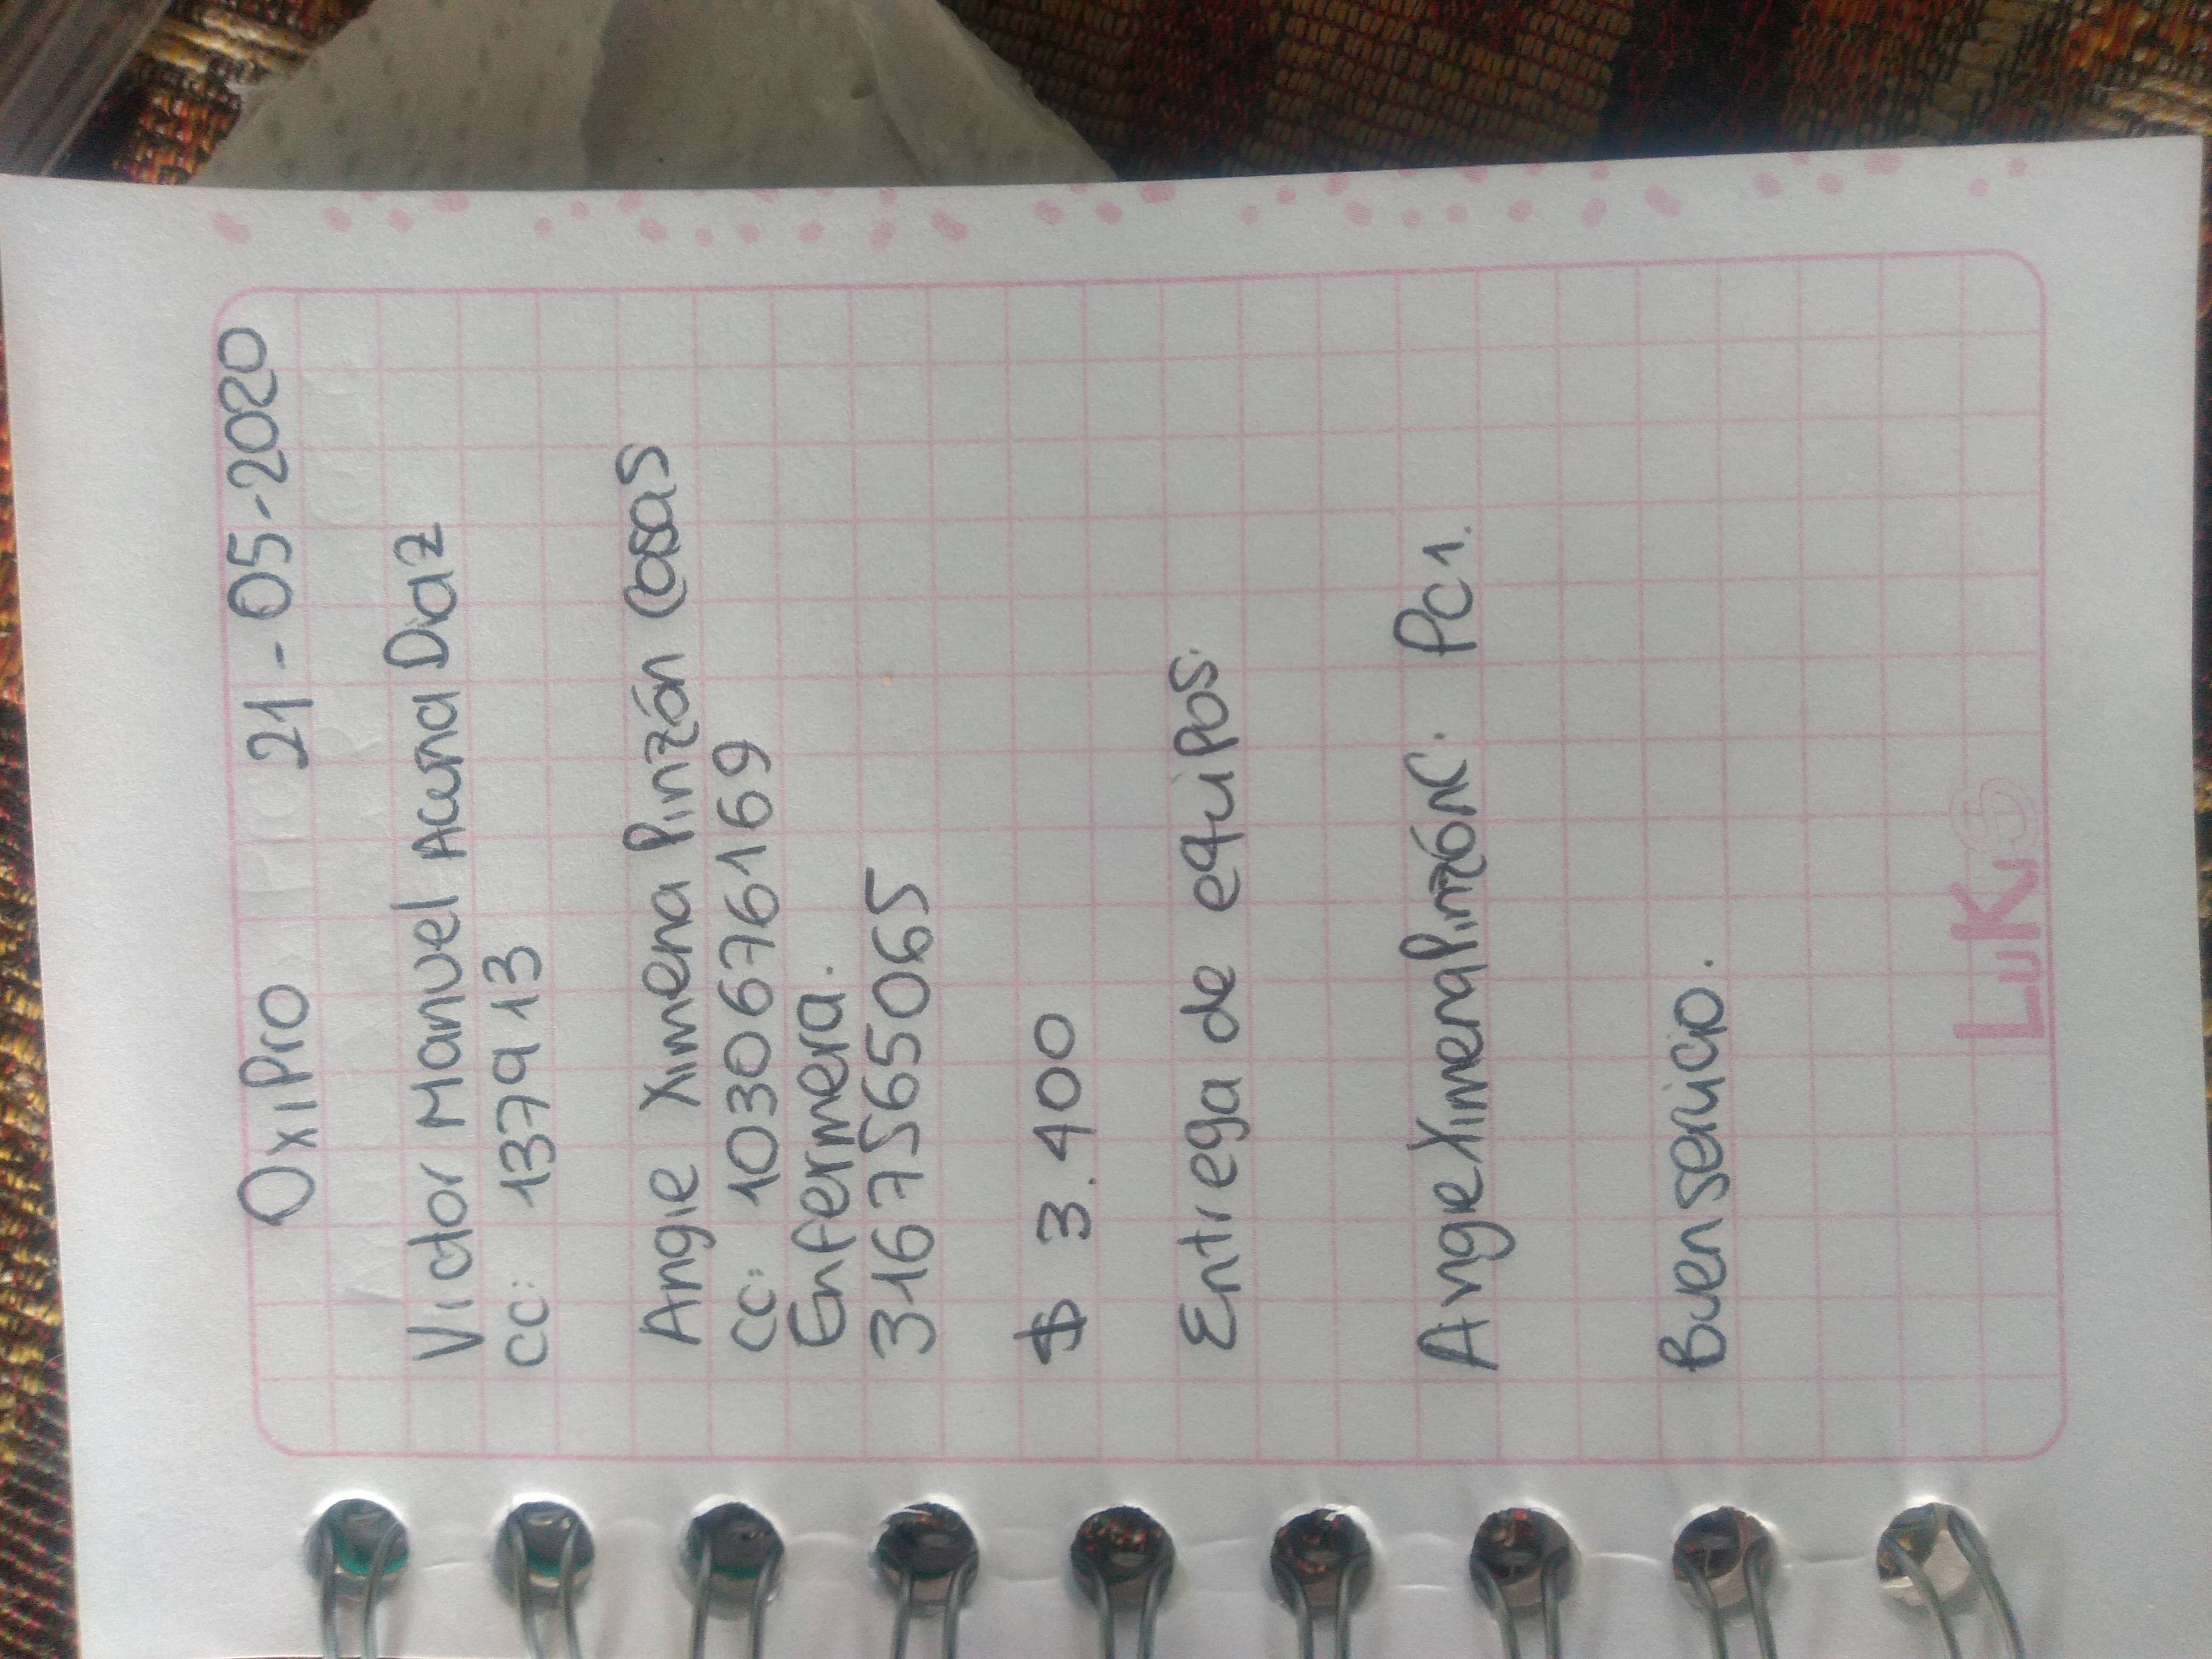 OxiPro 21-05-2020
Victor Manuel Acuna Diaz
cc: 137913
Angie Ximena Pinzón Casas
cc: 1030676169
Enfermera.
3167565065
$ 3.400
Entrega de equipos.
Angie Ximena Pinzón C. Pc1.
Buen servicio.
LuKi